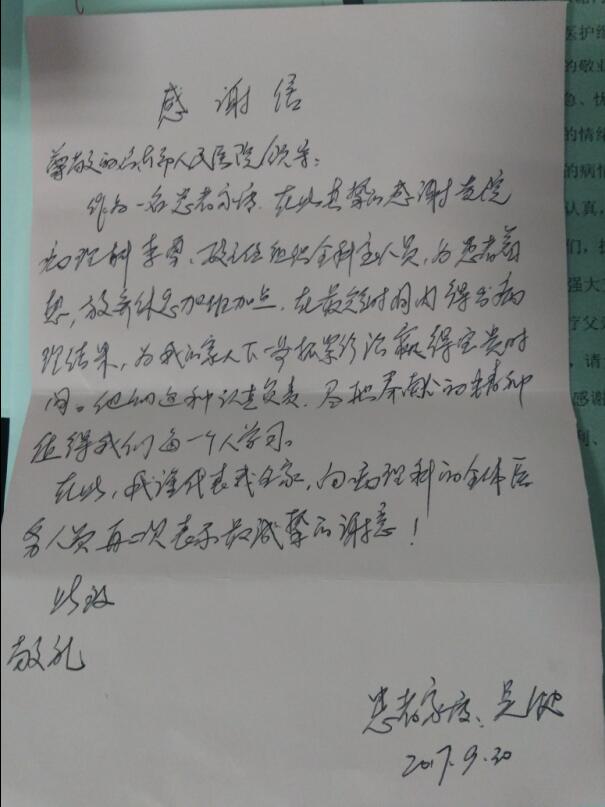 感谢信
尊敬的 人民医院领导:
作为一名患者家属,在此真挚的感谢贵院
病理科李 主任组织全科 人员,为患者着
想,放弃休息加班加点,在最短时间内得出病
理结果,为我的家人下一步抓紧诊治赢得宝贵时
间。他们这种认真负责、 奉献的精神
值得我们每一个人学习。
在此,我谨代表我全家,向病理科的全体医
务人员再一次表示最诚挚的谢意!
此致
敬礼
患者家属:吴
2017.9.20
医护维
的敬业
急、忧
的情绪
的病情
认真,
们,
强大
疗父
,请
感谢